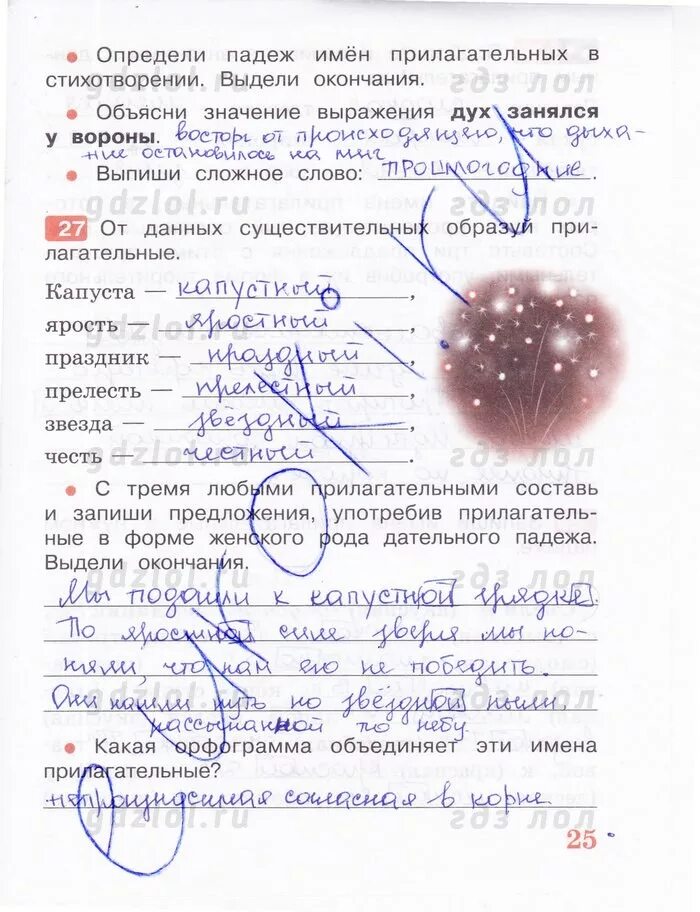 • Определи падеж имён прилагательных в
стихотворении. Выдели окончания.
• Объясни значение выражения дух занялся
у вороны. восторг от происходящего, что дыха-
ние остановилось на миг
• Выпиши сложное слово: прошлогодние.
27 От данных существительных образуй при-
лагательные.
Капуста — капустный,
ярость — яростный,
праздник — праздный,
прелесть — прелестный,
звезда — звёздный,
честь — честный.
• С тремя любыми прилагательными составь
и запиши предложения, употребив прилагатель-
ные в форме женского рода дательного падежа.
Выдели окончания.
Мы подошли к капустной грядке.
По яростной силе зверя мы по-
няли, что нам его не победить.
Они нашли путь по звёздной пыли,
рассыпанной по небу.
• Какая орфограмма объединяет эти имена
прилагательные?
непроизносимая согласная в корне
25
gdzlol.ru гдз лол
gdzlol.ru гдз лол
gdzlol.ru гдз лол
gdzlol.ru гдз лол
gdzlol.ru гдз лол
gdzlol.ru гдз лол
gdzlol.ru гдз лол
gdzlol.ru гдз лол